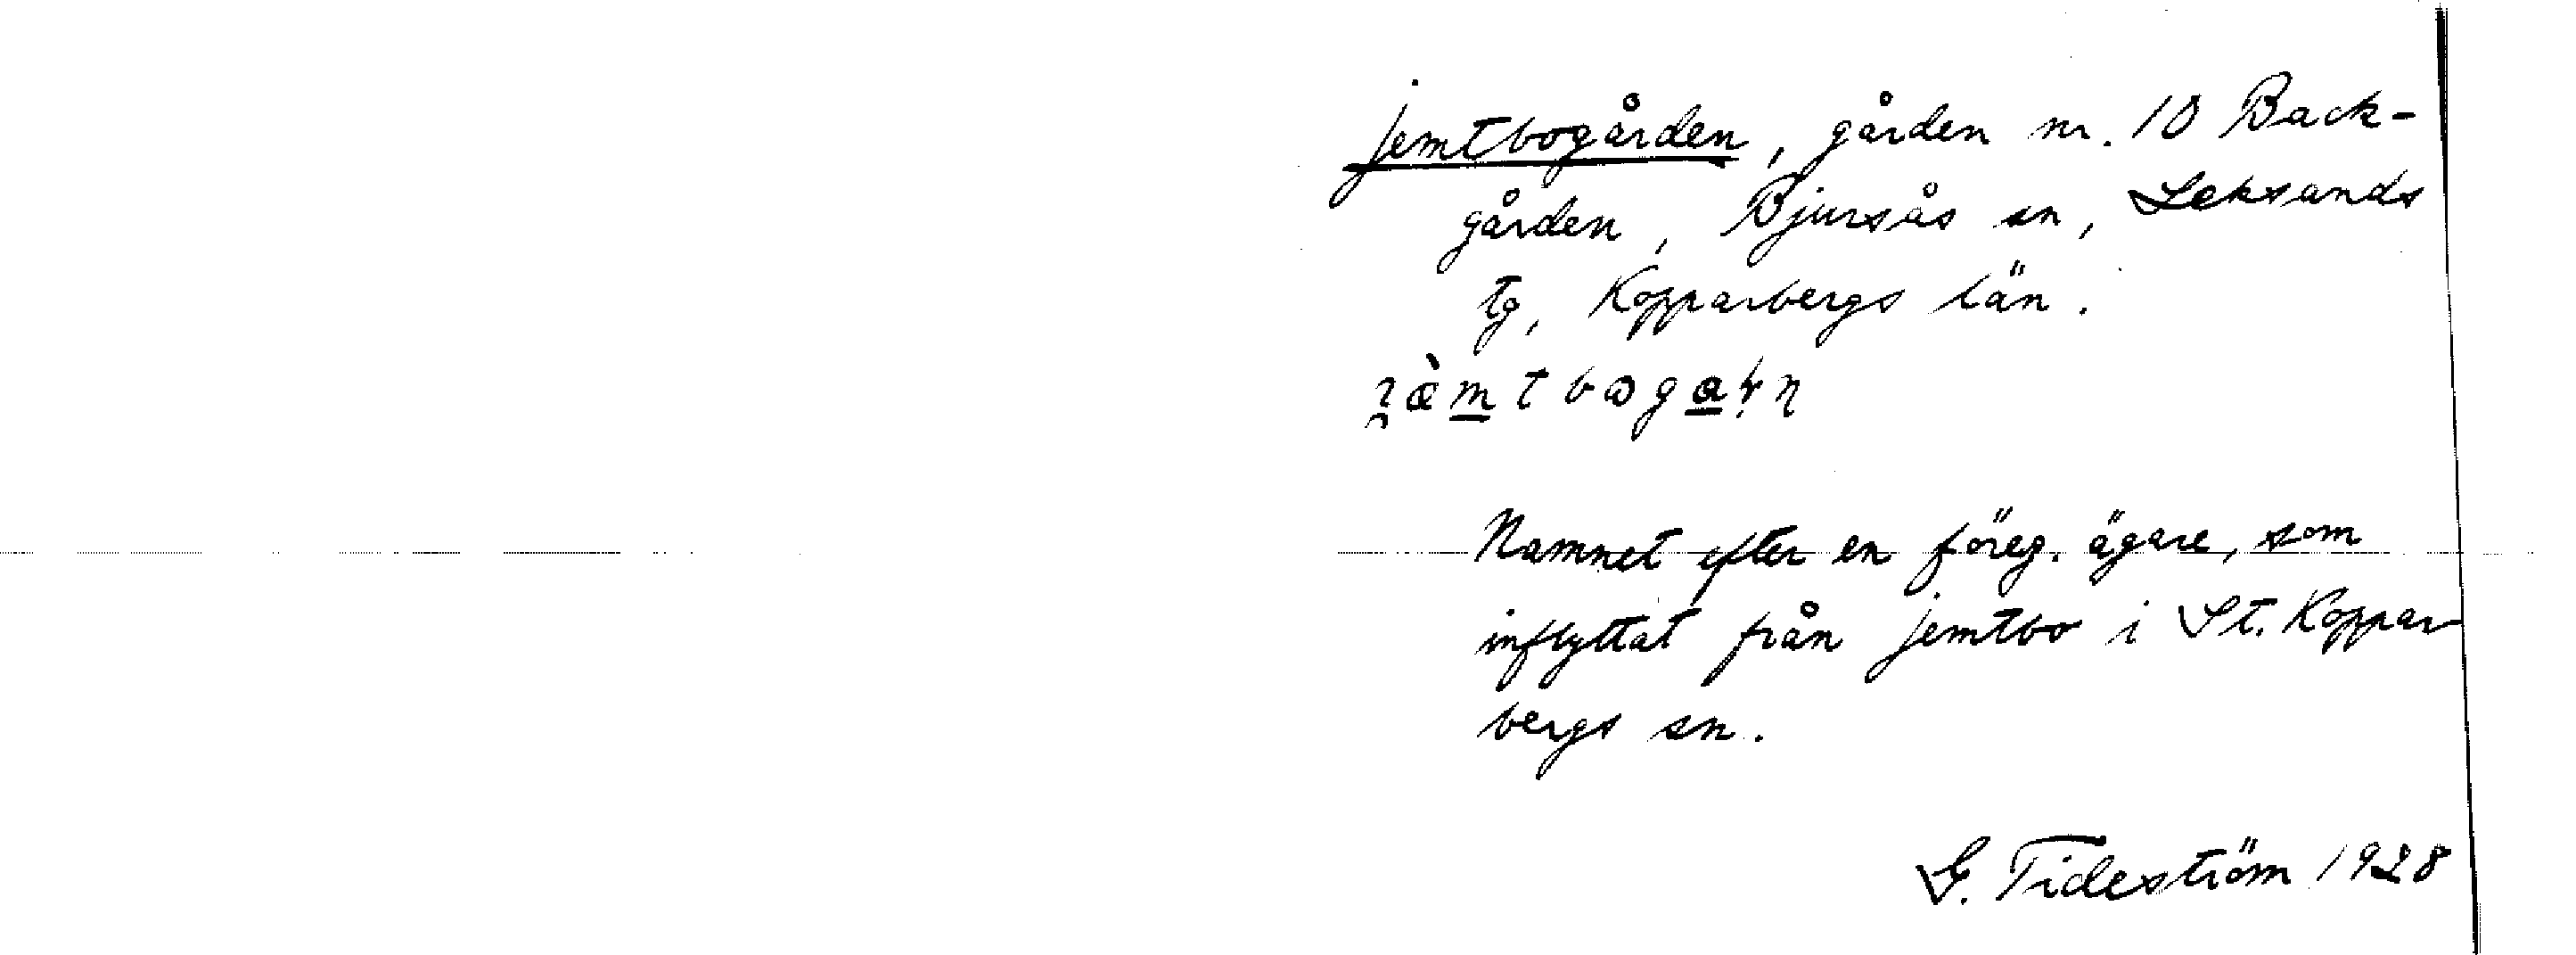 Jemtbogården, gården nr. 10 Back-
gården, Bjursås sn, Leksands
tg, Kopparbergs län.
Namnet efter en föreg. ägare, som
inflyttat från Jemtbo i St. Koppar
bergs sn.
G. Tideström 1928